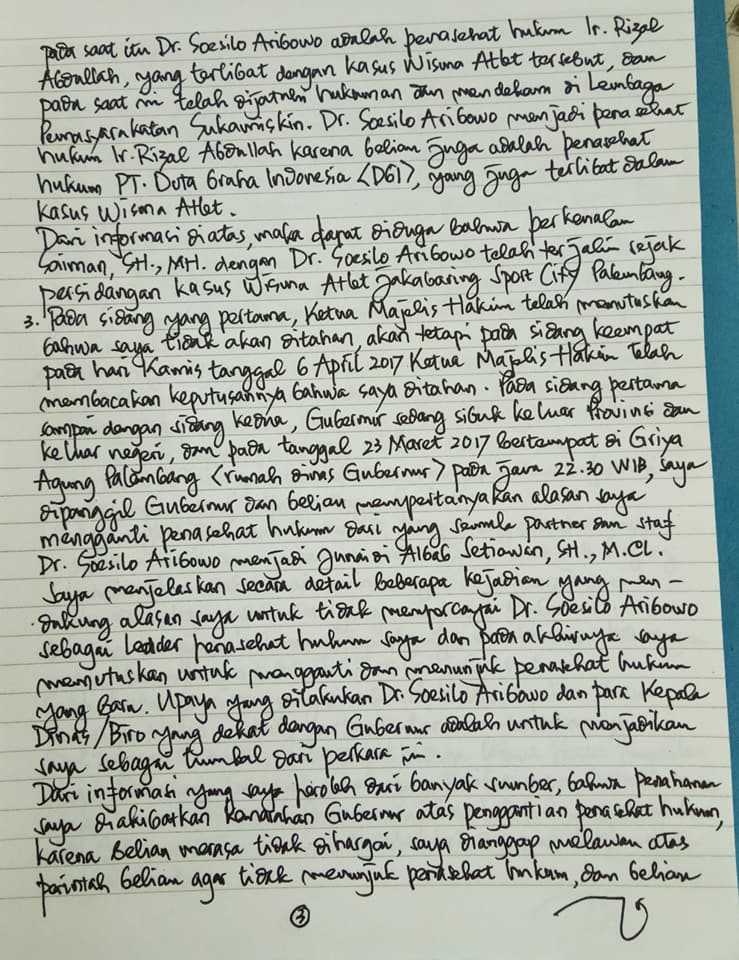 pada saat itu Dr. Soesilo Aribowo adalah penasehat hukum Ir. Rizal
Abdullah, yang terlibat dengan kasus Wisma Atlet tersebut, dan
pada saat ini telah dijatuhi hukuman dan mendekam di Lembaga
Pemasyarakatan Sukamiskin. Dr. Soesilo Aribowo menjadi penasehat
hukum Ir. Rizal Abdullah karena beliau juga adalah penasehat
hukum PT. Duta Graha Indonesia <DGI>, yang juga terlibat dalam
kasus Wisma Atlet.
Dari informasi diatas, maka dapat diduga bahwa perkenalan
Saiman, SH., MH. dengan Dr. Soesilo Aribowo telah terjalin sejak
persidangan kasus Wisma Atlet Jakabaring Sport City Palembang.
3. Pada sidang yang pertama, Ketua Majelis Hakim telah memutuskan
bahwa saya tidak akan ditahan, akan tetapi pada sidang keempat
pada hari Kamis tanggal 6 April 2017 Ketua Majelis Hakim telah
membacakan keputusannya bahwa saya ditahan. Pada sidang pertama
sampai dengan sidang kedua, Gubernur sedang sibuk keluar Provinsi dan
keluar negeri, dan pada tanggal 23 Maret 2017 bertempat di Griya
Agung Palembang <rumah dinas Gubernur> pada jam 22.30 WIB, saya
dipanggil Gubernur dan beliau mempertanyakan alasan saya
mengganti penasehat hukum dari yang semula partner dan staf
Dr. Soesilo Aribowo menjadi Junaidi Albab Setiawan, SH., M.CL.
Saya menjelaskan secara detail beberapa kejadian yang men-
dukung alasan saya untuk tidak mempercayai Dr. Soesilo Aribowo
sebagai leader penasehat hukum saya dan pada akhirnya saya
memutuskan untuk mengganti dan menunjuk penasehat hukum
yang baru. Upaya yang dilakukan Dr. Soesilo Aribowo dan para Kepala
Dinas/Biro yang dekat dengan Gubernur adalah untuk menjadikan
saya sebagai tumbal dari perkara ini.
Dari informasi yang saya peroleh dari banyak sumber, bahwa penahanan
saya diakibatkan kemarahan Gubernur atas penggantian penasehat hukum,
karena Beliau merasa tidak dihargai, saya dianggap melawan atas
perintah beliau agar tidak menunjuk penasehat hukum, dan beliau
3